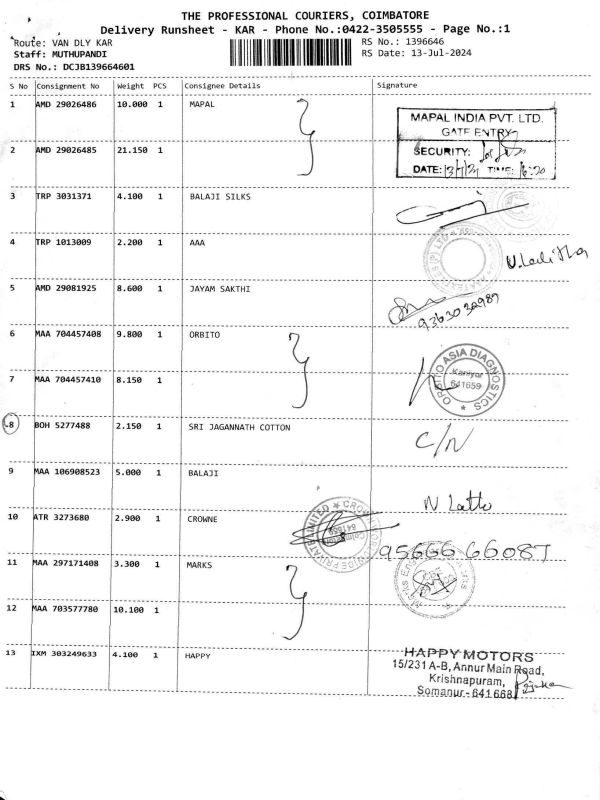 THE PROFESSIONAL COURIERS, COIMBATORE
Delivery Runsheet - KAR - Phone No.:0422-3505555 - Page No.:1
Route: VAN DLY KAR
RS No.: 1396646
Staff: MUTHUPANDI
RS Date: 13-Jul-2024
DRS No.: DCJB139664601
S No Consignment No Weight PCS Consignee Details Signature
1 AMD 29026486 10.000 1 MAPAL
MAPAL INDIA PVT. LTD.
GATE ENTRY
SECURITY:
DATE: TIME:
2 AMD 29026485 21.150 1
3 TRP 3031371 4.100 1 BALAJI SILKS
4 TRP 1013009 2.200 1 AAA
N. Lalitha
5 AMD 29081925 8.600 1 JAYAM SAKTHI
6 MAA 704457408 9.800 1 ORBITO
ORBITO ASIA DIAGNOSTICS
Kaniyur
641659
7 MAA 704457410 8.150 1
8 BOH 5277488 2.150 1 SRI JAGANNATH COTTON
C/N
9 MAA 106908523 5.000 1 BALAJI
10 ATR 3273680 2.900 1 CROWNE
11 MAA 297171408 3.300 1 MARKS
12 MAA 703577780 10.100 1
13 IXM 303249633 4.100 1 HAPPY
HAPPY MOTORS
15/231 A-B, Annur Main Road,
Krishnapuram,
Somanur - 641 668